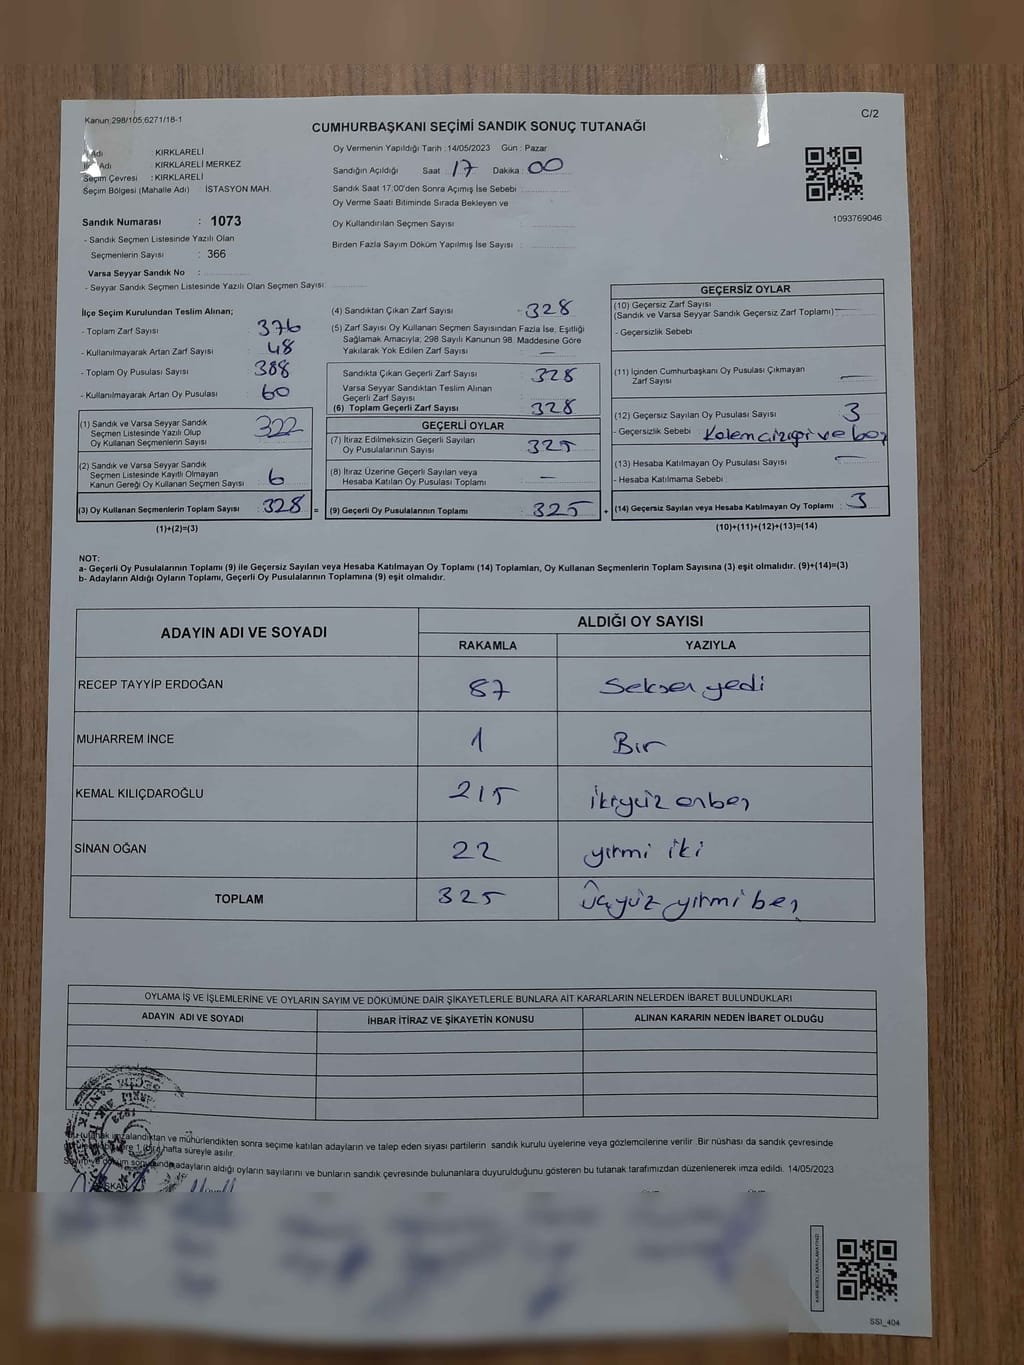 Kanun:298/105,6271/18-1
C/2
CUMHURBAŞKANI SEÇİMİ SANDIK SONUÇ TUTANAĞI
Adı KIRKLARELİ
Adı KIRKLARELİ MERKEZ
Seçim Çevresi : KIRKLARELİ
Seçim Bölgesi (Mahalle Adı) İSTASYON MAH.
Oy Vermenin Yapıldığı Tarih :14/05/2023 Gün : Pazar
Sandığın Açıldığı Saat 17 Dakika : 00
Sandık Saat 17:00'den Sonra Açımış İse Sebebi :
Oy Verme Saati Bitiminde Sırada Bekleyen ve
Oy Kullandırılan Seçmen Sayısı :
Birden Fazla Sayım Döküm Yapılmış İse Sayısı :
1093769046
Sandık Numarası : 1073
- Sandık Seçmen Listesinde Yazılı Olan
Seçmenlerin Sayısı : 366
Varsa Seyyar Sandık No :
- Seyyar Sandık Seçmen Listesinde Yazılı Olan Seçmen Sayısı:
İlçe Seçim Kurulundan Teslim Alınan;
- Toplam Zarf Sayısı : 376
- Kullanılmayarak Artan Zarf Sayısı : 48
- Toplam Oy Pusulası Sayısı : 388
- Kullanılmayarak Artan Oy Pusulası : 60
(1) Sandık ve Varsa Seyyar Sandık
Seçmen Listesinde Yazılı Olup
Oy Kullanan Seçmenlerin Sayısı : 322
(2) Sandık ve Varsa Seyyar Sandık
Seçmen Listesinde Kayıtlı Olmayan
Kanun Gereği Oy Kullanan Seçmen Sayısı : 6
(3) Oy Kullanan Seçmenlerin Toplam Sayısı : 328 =
(1)+(2)=(3)
(4) Sandıktan Çıkan Zarf Sayısı : 328
(5) Zarf Sayısı Oy Kullanan Seçmen Sayısından Fazla İse, Eşitliği
Sağlamak Amacıyla; 298 Sayılı Kanunun 98. Maddesine Göre
Yakılarak Yok Edilen Zarf Sayısı : —
Sandıkta Çıkan Geçerli Zarf Sayısı : 328
Varsa Seyyar Sandıktan Teslim Alınan
Geçerli Zarf Sayısı :
(6) Toplam Geçerli Zarf Sayısı : 328
GEÇERLİ OYLAR
(7) İtiraz Edilmeksizin Geçerli Sayılan
Oy Pusulasının Sayısı : 325
(8) İtiraz Üzerine Geçerli Sayılan veya
Hesaba Katılan Oy Pusulası Toplamı : —
(9) Geçerli Oy Pusulalarının Toplamı : 325 +
GEÇERSİZ OYLAR
(10) Geçersiz Zarf Sayısı
(Sandık ve Varsa Seyyar Sandık Geçersiz Zarf Toplamı): —
- Geçersizlik Sebebi :
(11) İçinden Cumhurbaşkanı Oy Pusulası Çıkmayan
Zarf Sayısı : —
(12) Geçersiz Sayılan Oy Pusulası Sayısı : 3
- Geçersizlik Sebebi : Kalem çizgi ve boş
(13) Hesaba Katılmayan Oy Pusulası Sayısı : —
- Hesaba Katılmama Sebebi :
(14) Geçersiz Sayılan veya Hesaba Katılmayan Oy Toplamı : 3
(10)+(11)+(12)+(13)=(14)
NOT:
a- Geçerli Oy Pusulalarının Toplamı (9) ile Geçersiz Sayılan veya Hesaba Katılmayan Oy Toplamı (14) Toplamları, Oy Kullanan Seçmenlerin Toplam Sayısına (3) eşit olmalıdır. (9)+(14)=(3)
b- Adayların Aldığı Oyların Toplamı, Geçerli Oy Pusulalarının Toplamına (9) eşit olmalıdır.
ADAYIN ADI VE SOYADI ALDIĞI OY SAYISI
RAKAMLA YAZIYLA
RECEP TAYYİP ERDOĞAN 87 Seksen yedi
MUHARREM İNCE 1 Bir
KEMAL KILIÇDAROĞLU 215 ikiyüz onbeş
SİNAN OĞAN 22 yirmi iki
TOPLAM 325 Üçyüz yirmi beş
OYLAMA İŞ VE İŞLEMLERİNE VE OYLARIN SAYIM VE DÖKÜMÜNE DAİR ŞİKAYETLERLE BUNLARA AİT KARARLARIN NELERDEN İBARET BULUNDUKLARI
ADAYIN ADI VE SOYADI İHBAR İTİRAZ VE ŞİKAYETİN KONUSU ALINAN KARARIN NEDEN İBARET OLDUĞU
imzalandıktan ve mühürlendikten sonra seçime katılan adayların ve talep eden siyasi partilerin sandık kurulu üyelerine veya gözlemcilerine verilir. Bir nüshası da sandık çevresinde
hafta süreyle asılır.
adayların aldığı oyların sayılarını ve bunların sandık çevresinde bulunanlara duyurulduğunu gösteren bu tutanak tarafımızdan düzenlenerek imza edildi. 14/05/2023
BAŞKAN
SSI_404